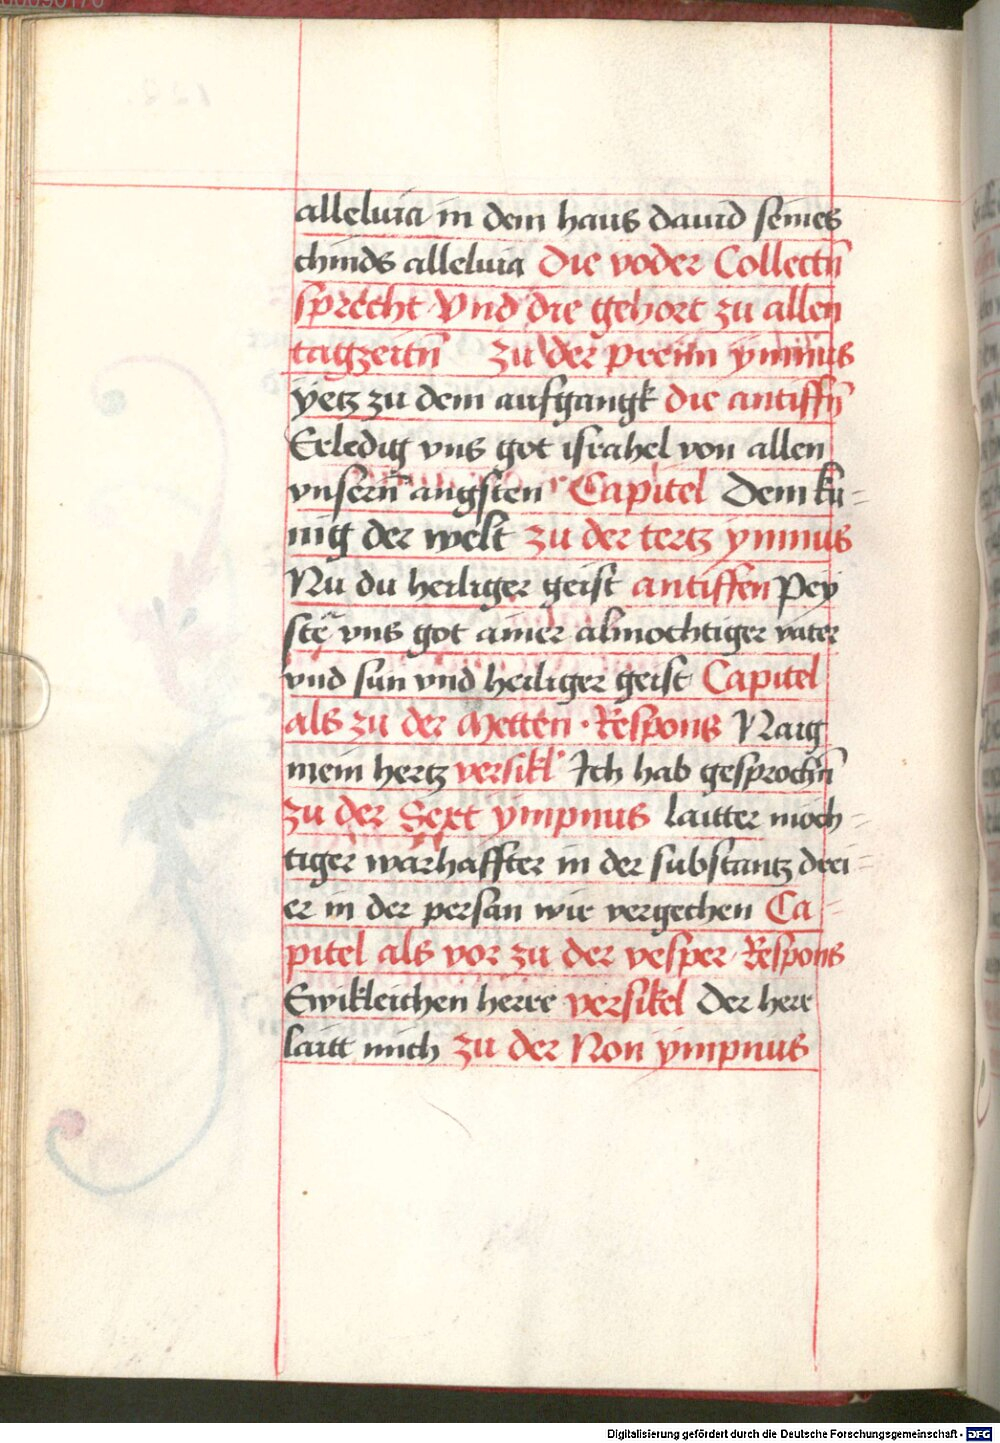 alleluia in dem haus dauid seines
chinds alleluia Die voder Collectn̄
sprecht Vnd die gehort zu allen
tagzeitn̄ zu der preim ymnus
yetz zu dem aufgangk die antiffn̄
Erledig vns got israhel von allen
vnsern̄ angsten Capitel Dem ku=
nig der welt zu der tertz ymnus
Nu du heiliger geist antiffen Pey
ste vns got ainer almochtiger vater
vnd sun vnd heiliger geist Capitel
als zu der Metten · Respons Naig
mein hertz versikl Ich hab gesprochn̄
zu der Sext ympnus laitter moch=
tiger warhaffter in der substantz drei=
er in der persan wir vergechen Ca=
pitel als vor zu der vesper Respons
Ewikleichen herre versikel Der herr
laitt mich zu der Non ympnus
Digitalisierung gefördert durch die Deutsche Forschungsgemeinschaft - DFG